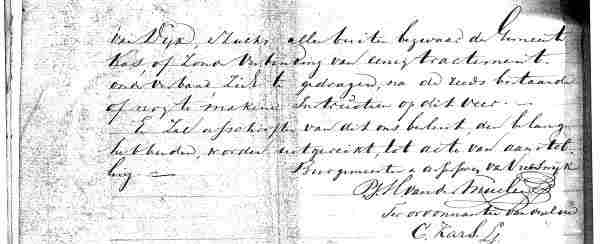 van Dijk, Stucks, alle buiten bezwaar de Gemeente
Kas of Zond Verbinding van eenig tractement.
onder verband Zich te gedragen, na de reeds bestaande
of nog te maken Instructien op dit veer.
En Zal afschriften van dit ons besluit, den belang
hebbenden, worden uitgereikt, tot acte van aanstel
ling.
Burgemeester en assessoren van Vreeswijk
Ter ordonnantie van dezelve